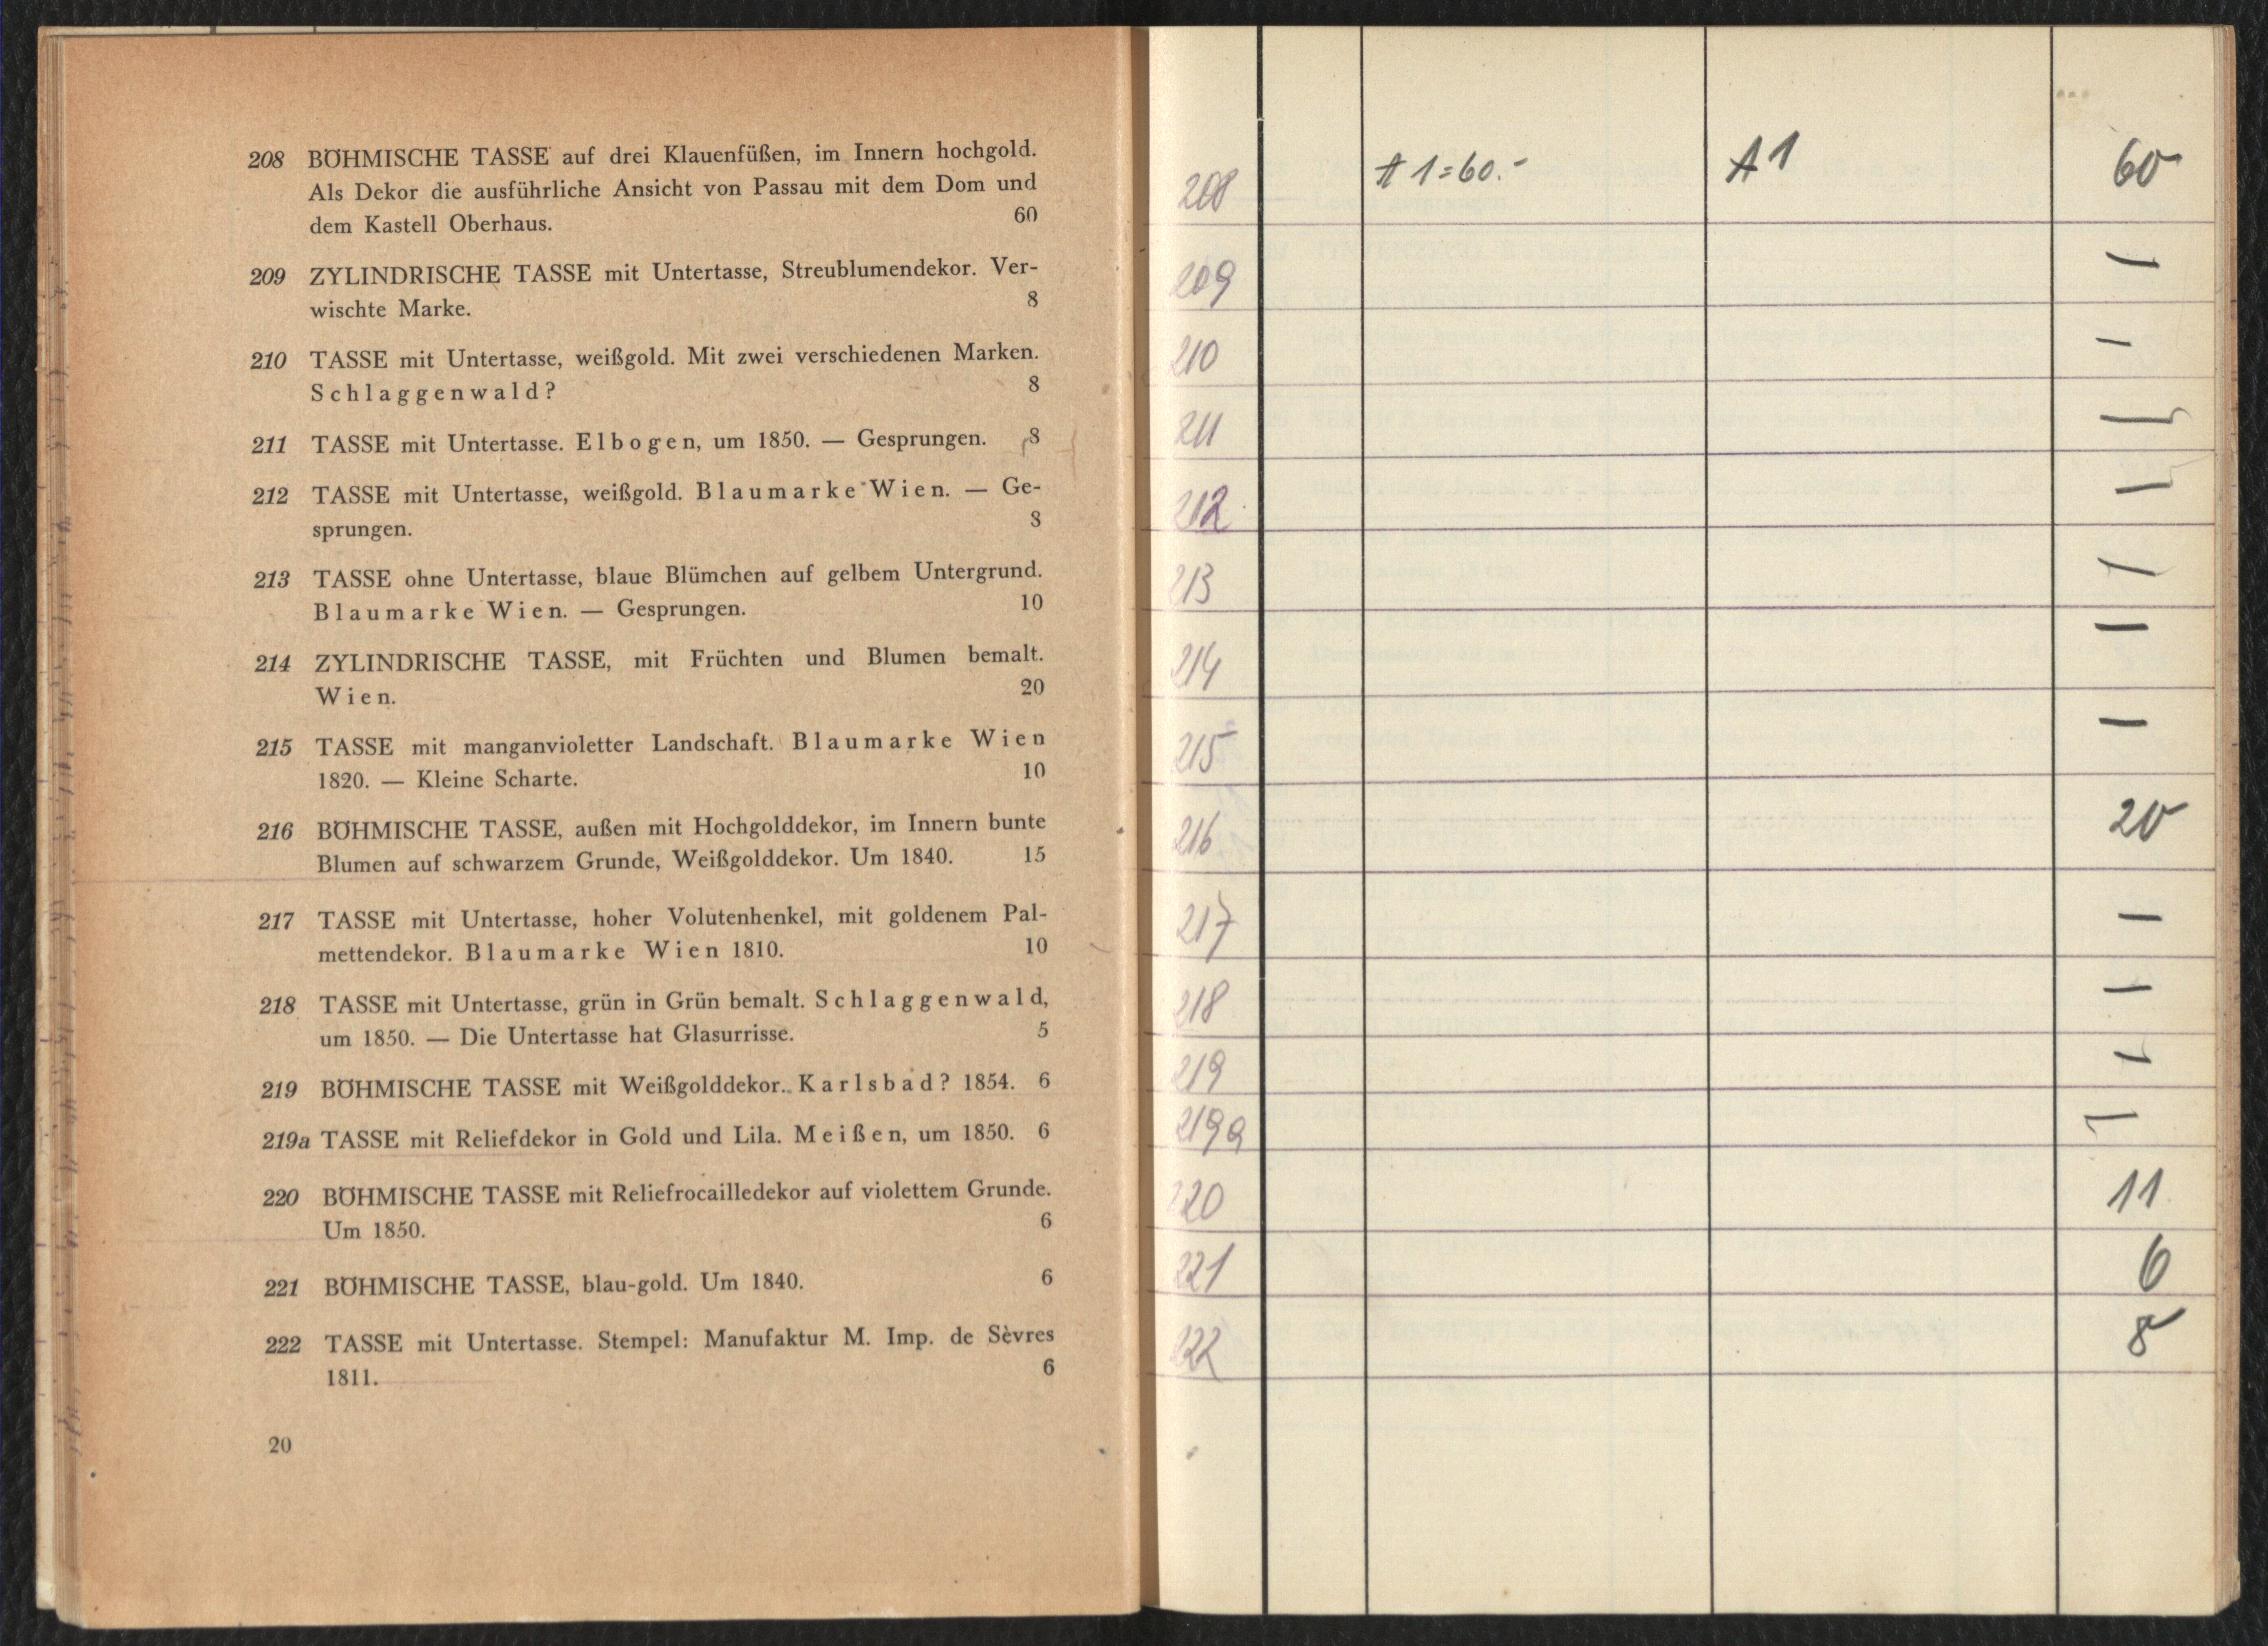 208 BÖHMISCHE TASSE auf drei Klauenfüßen, im Innern hochgold.
Als Dekor die ausführliche Ansicht von Passau mit dem Dom und
dem Kastell Oberhaus. 60
209 ZYLINDRISCHE TASSE mit Untertasse, Streublumendekor. Ver-
wischte Marke. 8
210 TASSE mit Untertasse, weißgold. Mit zwei verschiedenen Marken.
Schlaggenwald? 8
211 TASSE mit Untertasse. Elbogen, um 1850. — Gesprungen. 8
212 TASSE mit Untertasse, weißgold. Blaumarke Wien. — Ge-
sprungen. 8
213 TASSE ohne Untertasse, blaue Blümchen auf gelbem Untergrund.
Blaumarke Wien. — Gesprungen. 10
214 ZYLINDRISCHE TASSE, mit Früchten und Blumen bemalt.
Wien. 20
215 TASSE mit manganvioletter Landschaft. Blaumarke Wien
1820. — Kleine Scharte. 10
216 BÖHMISCHE TASSE, außen mit Hochgolddekor, im Innern bunte
Blumen auf schwarzem Grunde, Weißgolddekor. Um 1840. 15
217 TASSE mit Untertasse, hoher Volutenhenkel, mit goldenem Pal-
mettendekor. Blaumarke Wien 1810. 10
218 TASSE mit Untertasse, grün in Grün bemalt. Schlaggenwald,
um 1850. — Die Untertasse hat Glasurrisse. 5
219 BÖHMISCHE TASSE mit Weißgolddekor. Karlsbad? 1854. 6
219a TASSE mit Reliefdekor in Gold und Lila. Meißen, um 1850. 6
220 BÖHMISCHE TASSE mit Reliefrocailledekor auf violettem Grunde.
Um 1850. 6
221 BÖHMISCHE TASSE, blau-gold. Um 1840. 6
222 TASSE mit Untertasse. Stempel: Manufaktur M. Imp. de Sèvres
1811. 6
20
208 A 1=60.- A 1 60
209 —
210 —
211 —
212 —
213 —
214 —
215 —
216 20
217 —
218 —
219 —
219a —
220 11
221 6
222 8